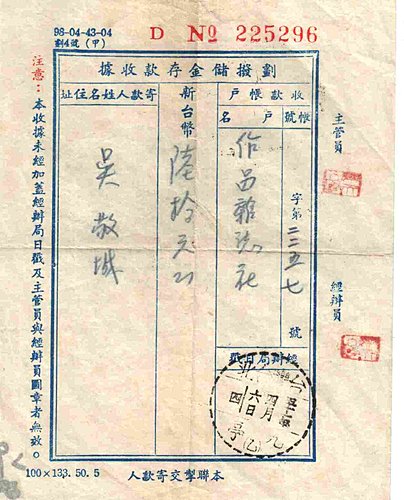 98-04-43-04
劃4號(甲)
D № 225296
劃撥儲金存款收據
主管員
經辦員
收款帳戶
帳號
字第二三五七號
戶名
作品雜誌社
經辦局日戳
新台幣
陸拾元正
寄款人姓名住址
吳敬城
注意：本收據未經加蓋經辦局日戳及主管員與經辦員圖章者無效。
本聯掣交寄款人
100×133.50.5